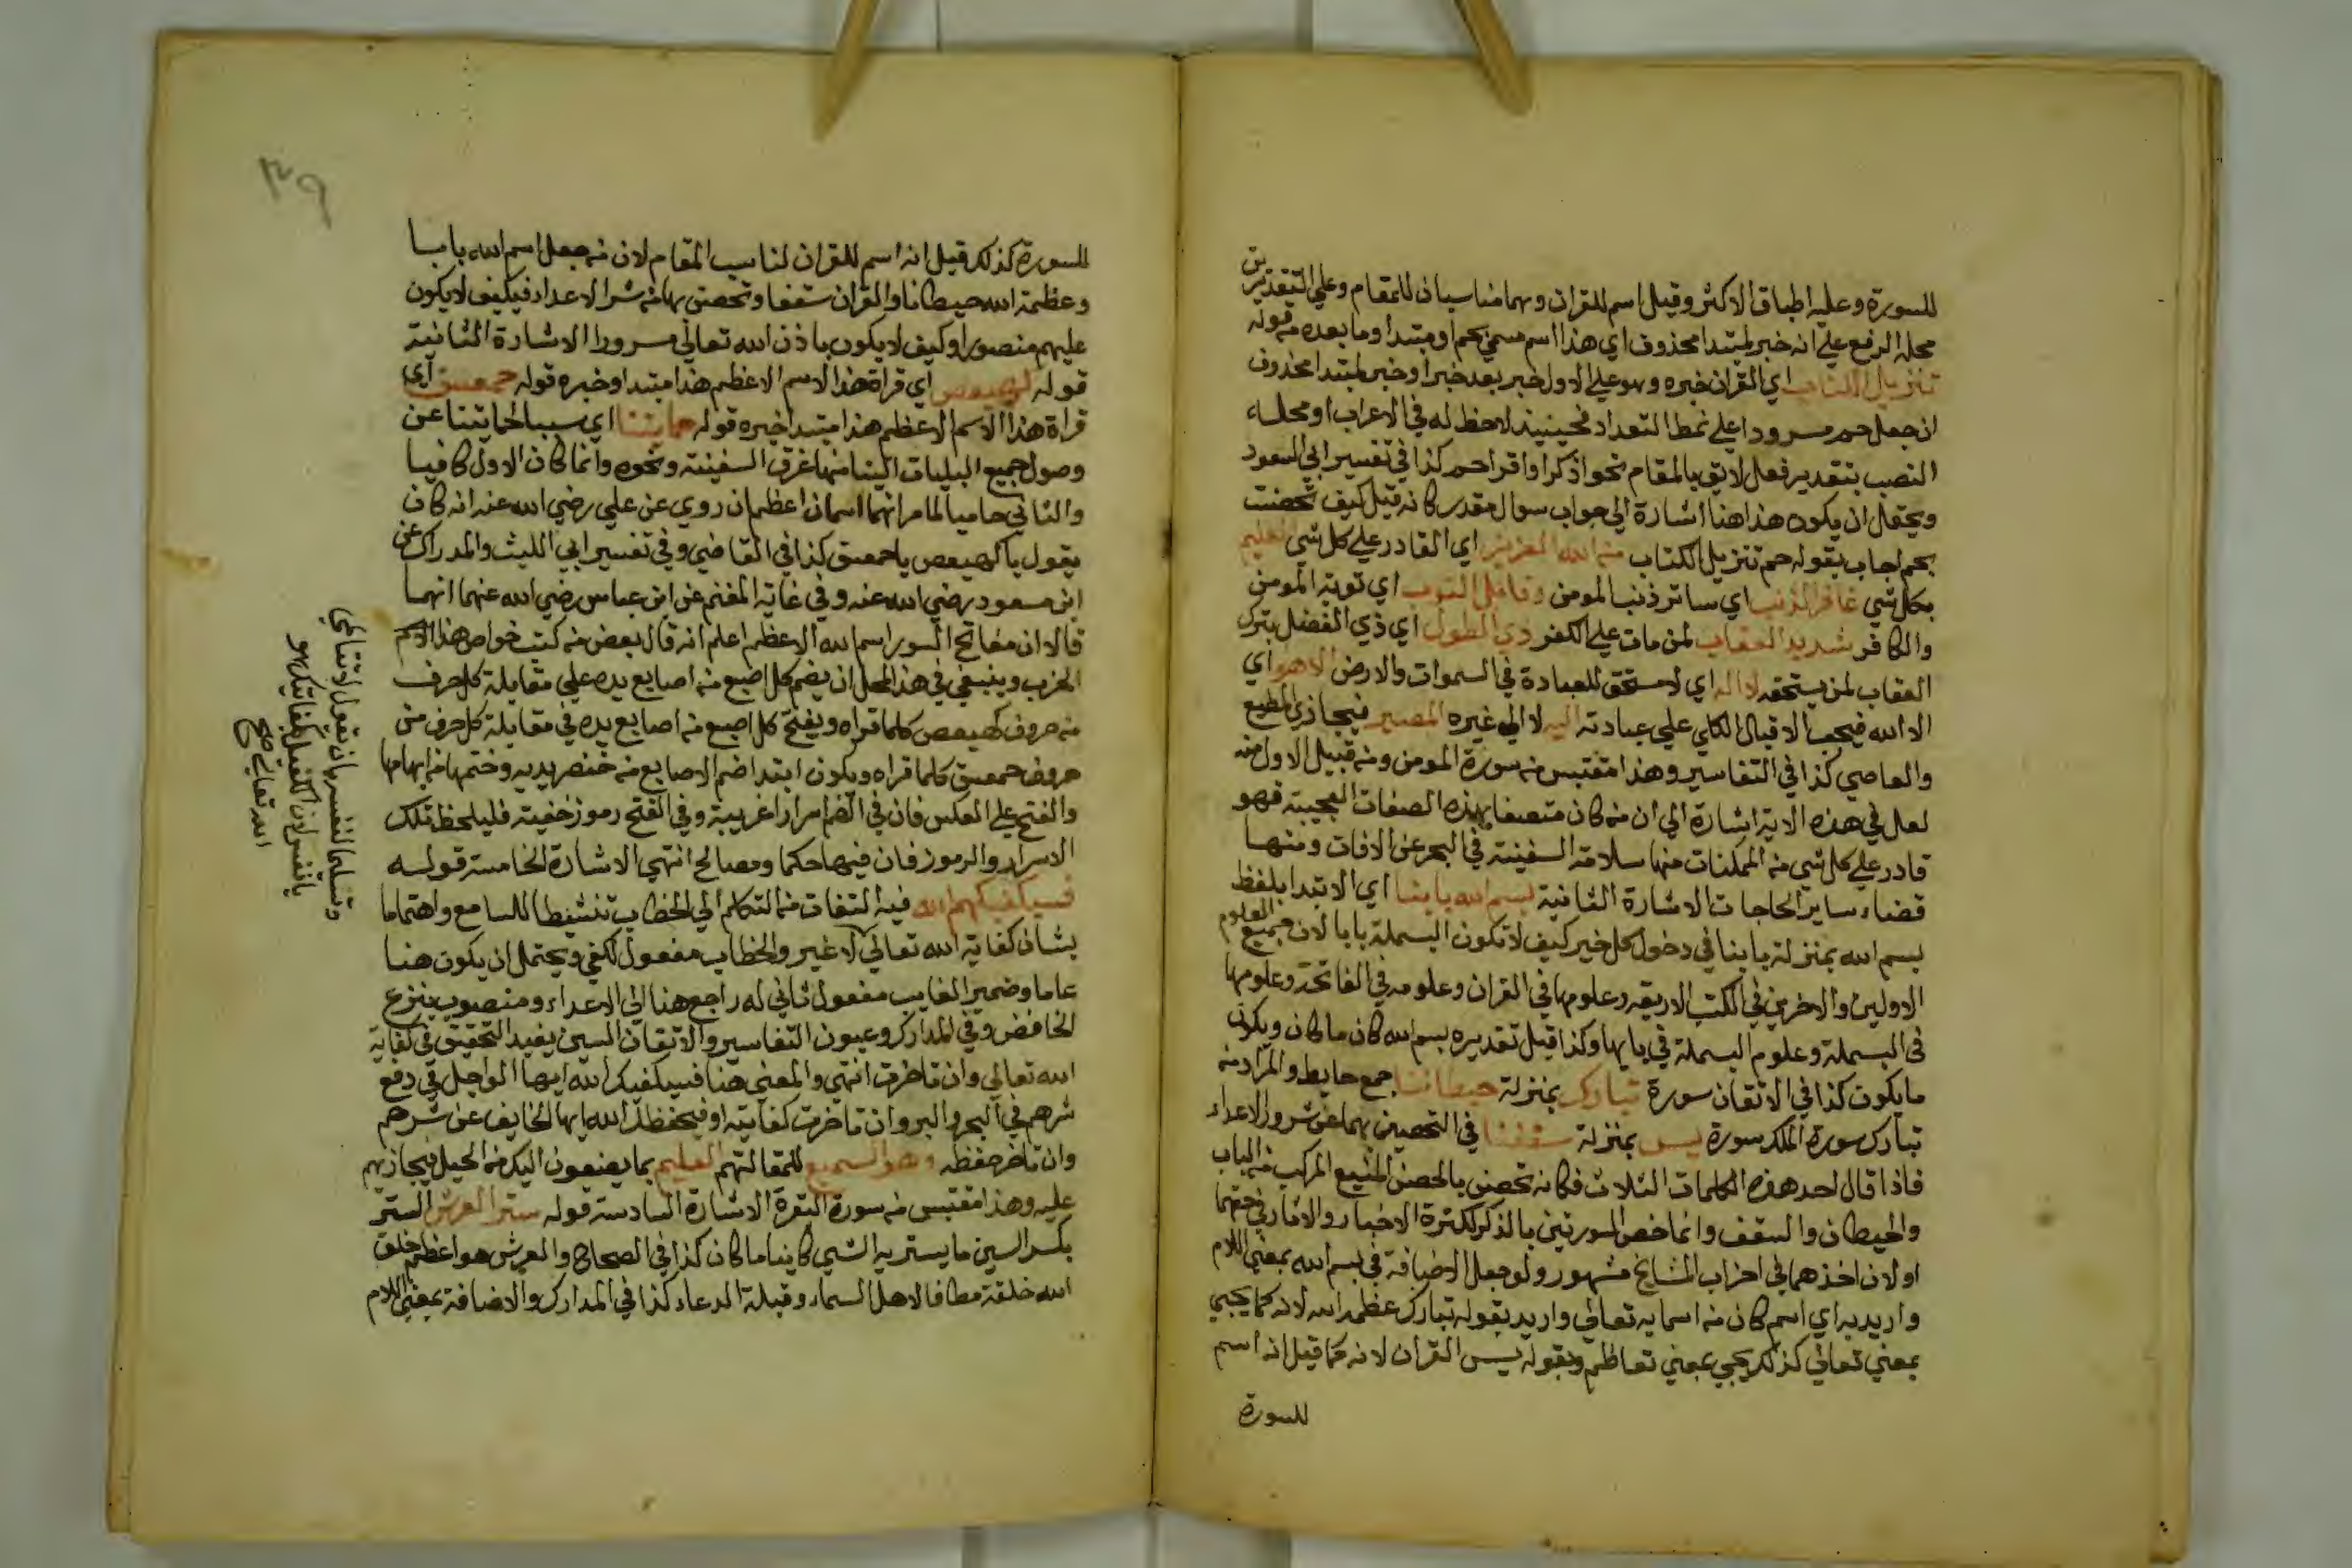 للسورة وعليه اطباق الاكثر وقيل اسم للقران وهما مناسبان للمقام وعلي التقديرين
محله الرفع علي انه خبر لمبتدا محذوف اي هذا اسم مسمي بحم او مبتدا وما بعده من قوله
تنزيل الكتاب اي القران خبره وهو علي الاول خبر بعد خبر او خبر لمبتدا محذوف
ان جعل حم مسرودا علي نمط التعداد فحينيذ لا حظ له في الاعراب او محله
النصب بتقدير فعل لايق بالمقام نحو اذكر او اقرا حم كذا في تفسير ابي السعود
ويحتمل ان يكون هذا هنا اشارة الي جواب سوال مقدر كانه قيل كيف تحصنت
بحم اجاب بقوله حم تنزيل الكتاب من الله العزيز اي القادر علي كل شي العليم
بكل شي غافر الذنب اي ساتر ذنب المومن وقابل التوب اي توبة المومن
والكافر شديد العقاب لمن مات علي الكفر ذي الطول اي ذي الفضل بترك
العقاب لمن يستحقه لا اله اي لا مستحق للعبادة في السموات والارض الا هو اي
الا الله فيجب الاقبال الكلي علي عبادته اليه لا الي غيره المصير فيجازي المطيع
والعاصي كذا في التفاسير وهذا مقتبس من سورة المومن ومن قبيل الاول منه
لعل في هذه الاية اشارة الي ان من كان متصفا بهذه الصفات العجيبة فهو
قادر علي كل شي من الممكنات منها سلامة السفينة في البحر عن الافات ومنها
قضاء ساير الحاجات الاشارة الثانية بسم الله بابنا اي الابتدا بلفظ
بسم الله بمنزلة بابنا في دخول كل خير كيف لا تكون البسملة بابا لان جميع العلوم
الاولين والاخرين في الكتب الاربعة وعلومها في القران وعلومه في الفاتحة وعلومها
في البسملة وعلوم البسملة في بايها وكذا قيل تقديره بسم الله كان ما كان ويكون
ما يكون كذا في الاتقان سورة تبارك بمنزلة حيطاننا جمع حايط والمراد منه
تبارك سورة الملك سورة يس بمنزلة سقفنا في التحصين بهما عن شرور الاعداء
فاذا قال احد هذه الكلمات الثلاث فكانه تحصن بالحصن المنيع المركب من الباب
والحيطان والسقف وانما خص السورتين بالذكر لكثرة الاخبار والاثار في حقهما
او لان اخذهما في احزاب المشايخ مشهور ولو جعل الاضافة في بسم الله بمعني اللام
واريد به اي اسم كان من اسمايه تعالي واريد بقوله تبارك عظمة الله لانه كما يجيي
بمعني تعالي كذلك يجي بمعني تعاظم وبقوله يس القران لانه كما قيل انه اسم
للسورة
٣٩
للسورة كذلك قيل انه اسم للقران لناسب المقام لان من جعل اسم الله بابا
وعظمة الله حيطانا والقران سقفا وتحصن بها من شر الاعداء فكيف لا يكون
عليهم منصورا وكيف لا يكون باذن الله تعالي مسرورا الاشارة الثانية
قوله كهيعص اي قراة هذا الاسم الاعظم هذا مبتدا وخبره قوله حمعسق اي
قراة هذا الاسم الاعظم هذا مبتدا خبره قوله حمايتنا اي سببا لحمايتنا عن
وصول جميع البليات الينا منها غرق السفينة ونحوه وانما كان الاول كافيا
والثاني حاميا لما مر انهما اسمان اعظمان روي عن علي رضي الله عنه انه كان
يقول يا كهيعص يا حمعسق كذا في القاضي وفي تفسير ابي الليث والمدراك عن
ابن مسعود رضي الله عنه وفي غاية المغنم عن ابن عباس رضي الله عنهما انهما
قالا ان مفاتح السور اسم الله الاعظم اعلم انه قال بعض من كتب خواص هذا الاسم
الحزب وينبغي في هذا المحل ان يضم كل اصبع من اصابع يده علي مقابلة كل حرف
من حروف كهيعص كلما قراه ويفتح كل اصبع من اصابع يده في مقابلة كل حرف من
حروف حمعسق كلما قراه ويكون ابتدا ضم الاصابع من خنصر يديه وختمها من ابهامها
والفتح علي العكس فان في الضم اسرارا غريبة وفي الفتح رموز خفية فليلحظ تلك
الاسرار والرموز فان فيها حكما ومصالح انتهي الاشارة الخامسة قوله
فسيكفيكهم الله فيه التفات من التكلم الي الخطاب تنشيطا للسامع واهتماما
بشان كفاية الله تعالي لا غير والخطاب مفعول لكفي ويحتمل ان يكون هنا
عاما وضمير الغايب مفعول ثاني له راجع هنا الي الاعداء ومنصوب بنزع
الخافض وفي المدارك وعيون التفاسير والاتقان السين يفيد التحقيق في كفاية
الله تعالي وان تاخرت انتهي والمعني هنا فسيكفيك الله ايها الواجل في دفع
شرهم في البحر والبر وان تاخرت كفايته او فيحفظك الله ايها الخايف عن شرهم
وان تاخر حفظه وهو السميع للمقالتهم العليم بما يصنعون اليك من الحيل فيجازيهم
عليه وهذا مقتبس من سورة البقرة الاشارة السادسة قوله ستر العرش الستر
بكسر السين ما يستر به الشي كاينا ما كان كذا في الصحاح والعرش هو اعظم خلق
الله خلقة مطافا لاهل السماء وقبلة الدعاء كذا في المدارك والاضافة بمعني اللام
وتسلما لنفسه بان تقول لا تتالمي
يا نفس لان الكفيل لكفايتك هو
الله تعالي صح